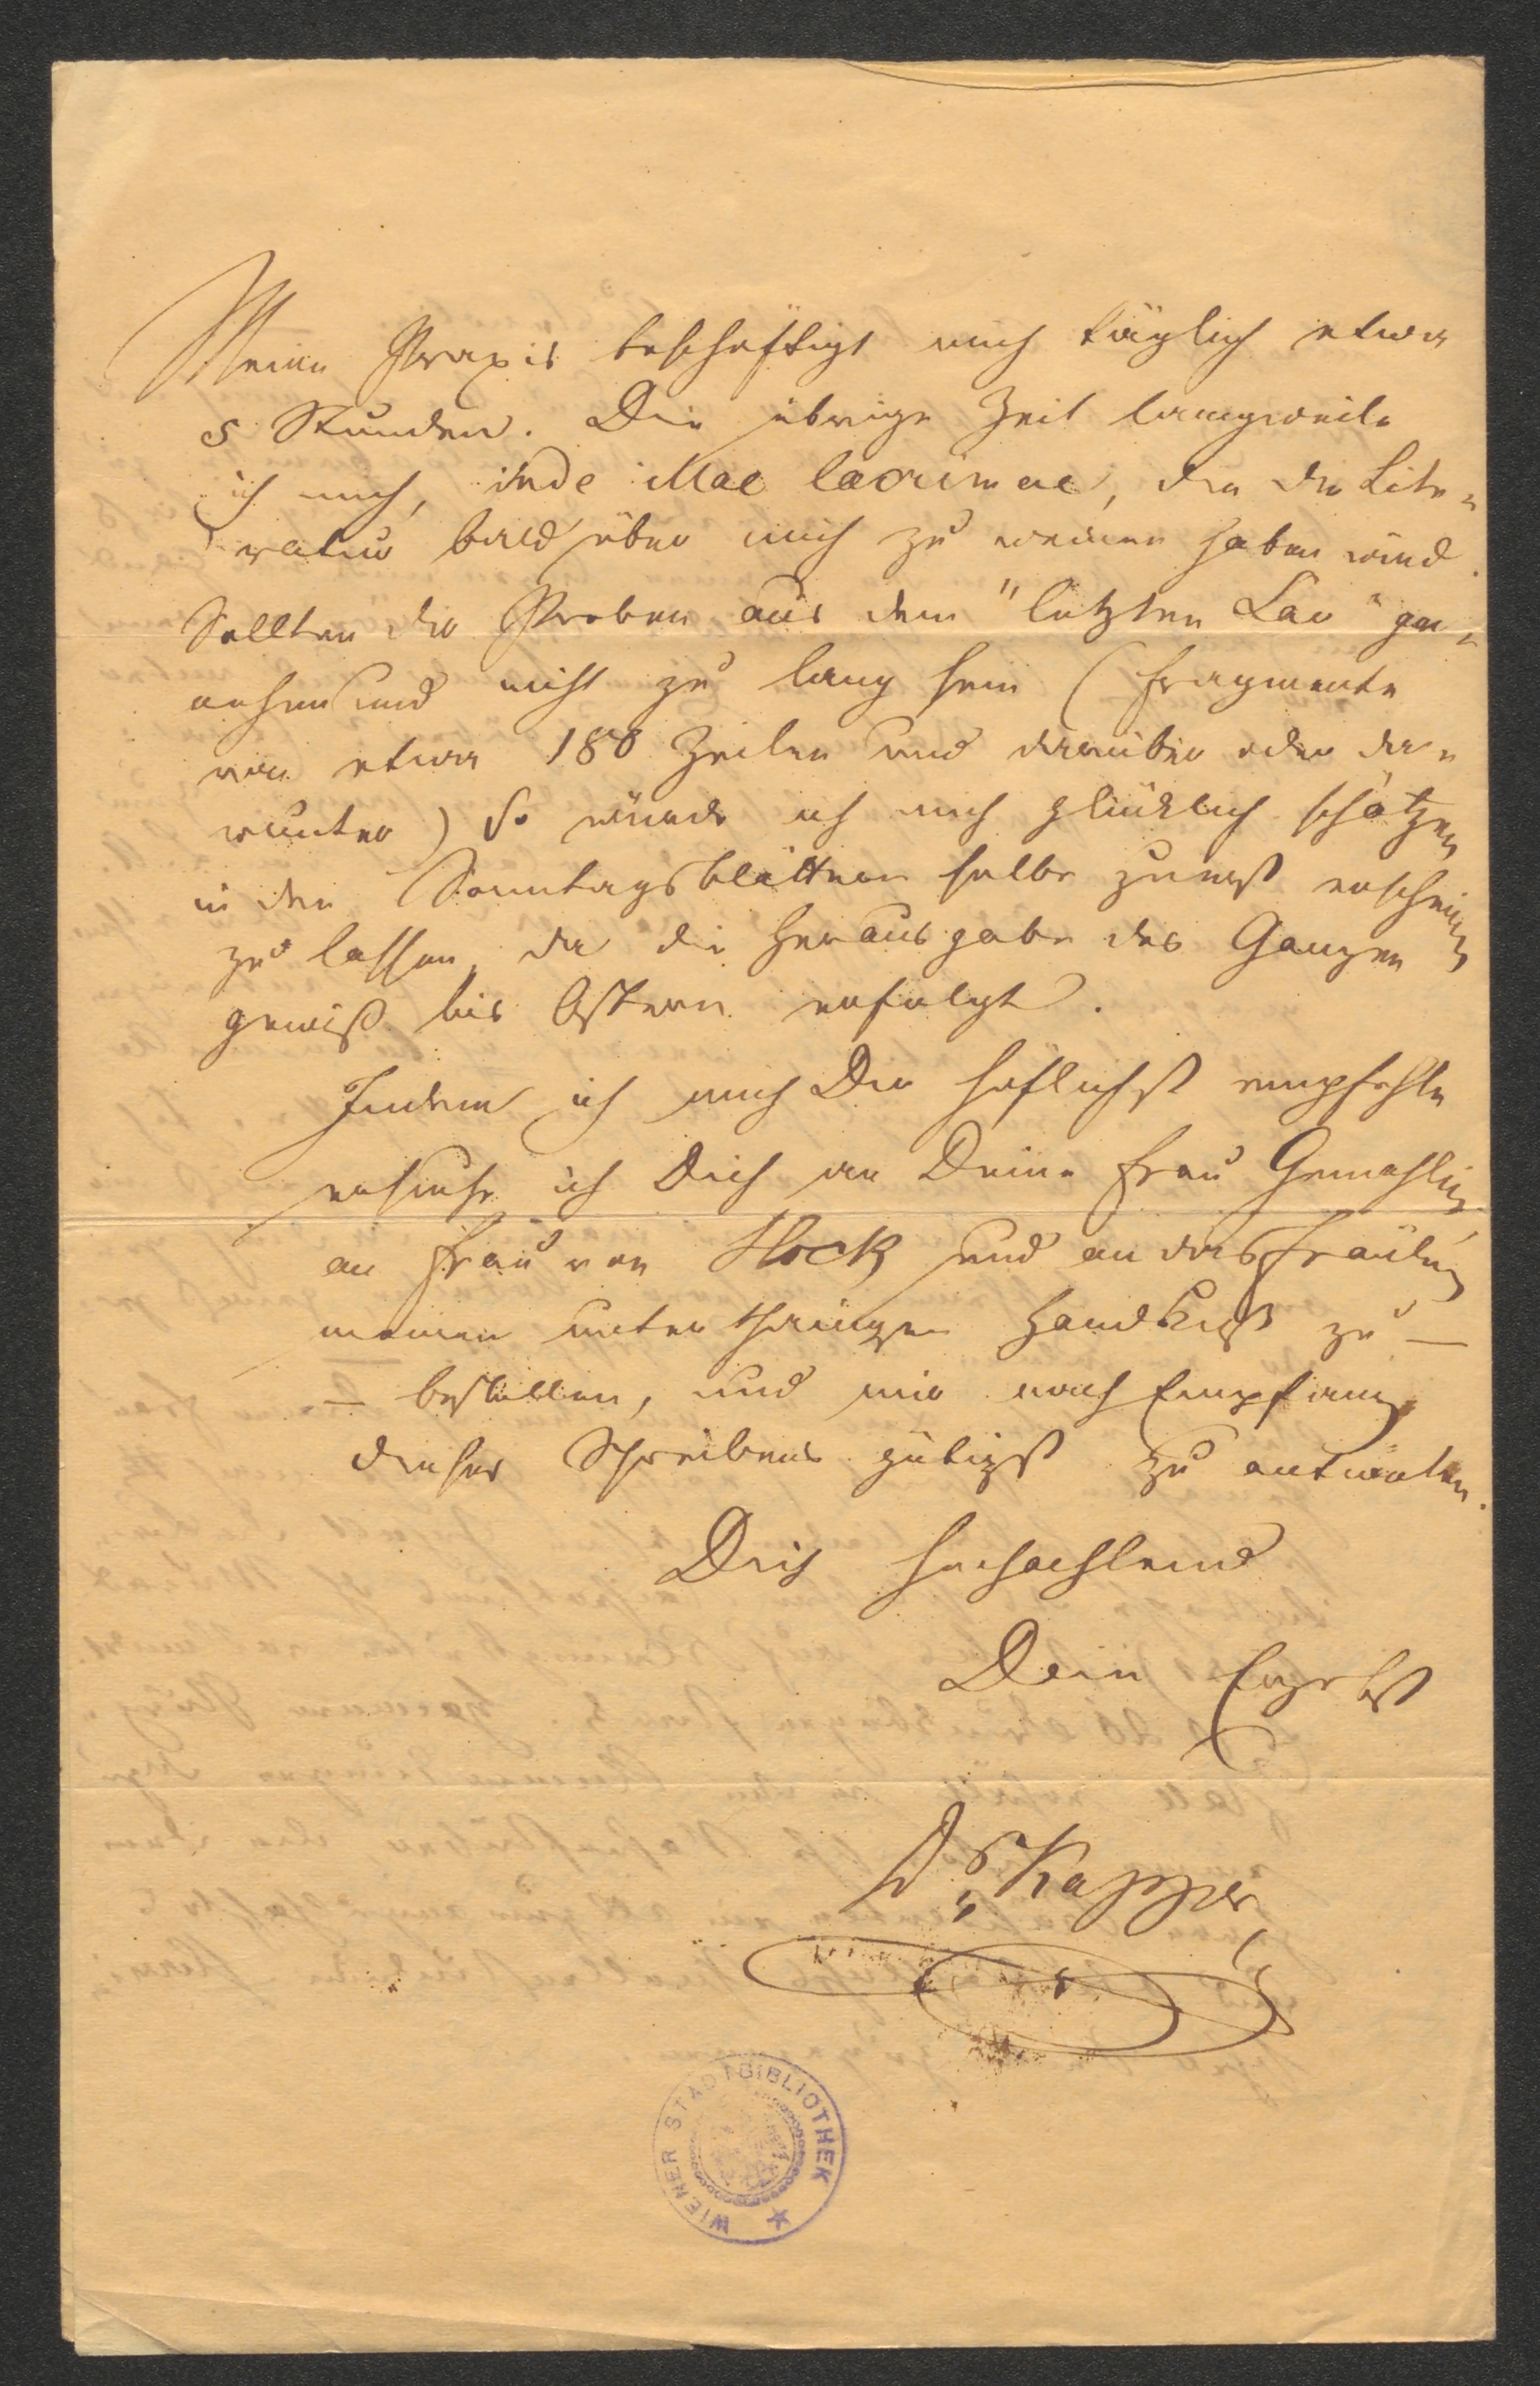 Meine Praxis beschäftigt mich täglich etwa
5 Stunden. Die übrige Zeit langweile
ich mich, inde illae lacrimae, die die Lite-
ratur bald über mich zu weinen haben wird.
Sollten die Proben aus dem "letzten Car" ge-
nehm und nicht zu lang sein (Fragmente
von etwa 180 Zeilen und darüber oder da-
runter) so würde ich mich glücklich schätzen
in den Sonntagsblättern selbe zuerst erscheinen
zu lassen, da die Herausgabe des Ganzen
gewiß bis Ostern erfolgt.
Indem ich mich Dir höflichst empfehle
ersuche ich Dich an Deine Frau Gemahlin
an Frau von Hock und an das Fräulein
meinen unterthänigen Handkuß zu —
— bestellen, und mir nach Empfang
dieses Schreibens gütigst zu antworten.
Dich hochachtend
Dein Ergebst
Dr Kapper
WIENER STADTBIBLIOTHEK